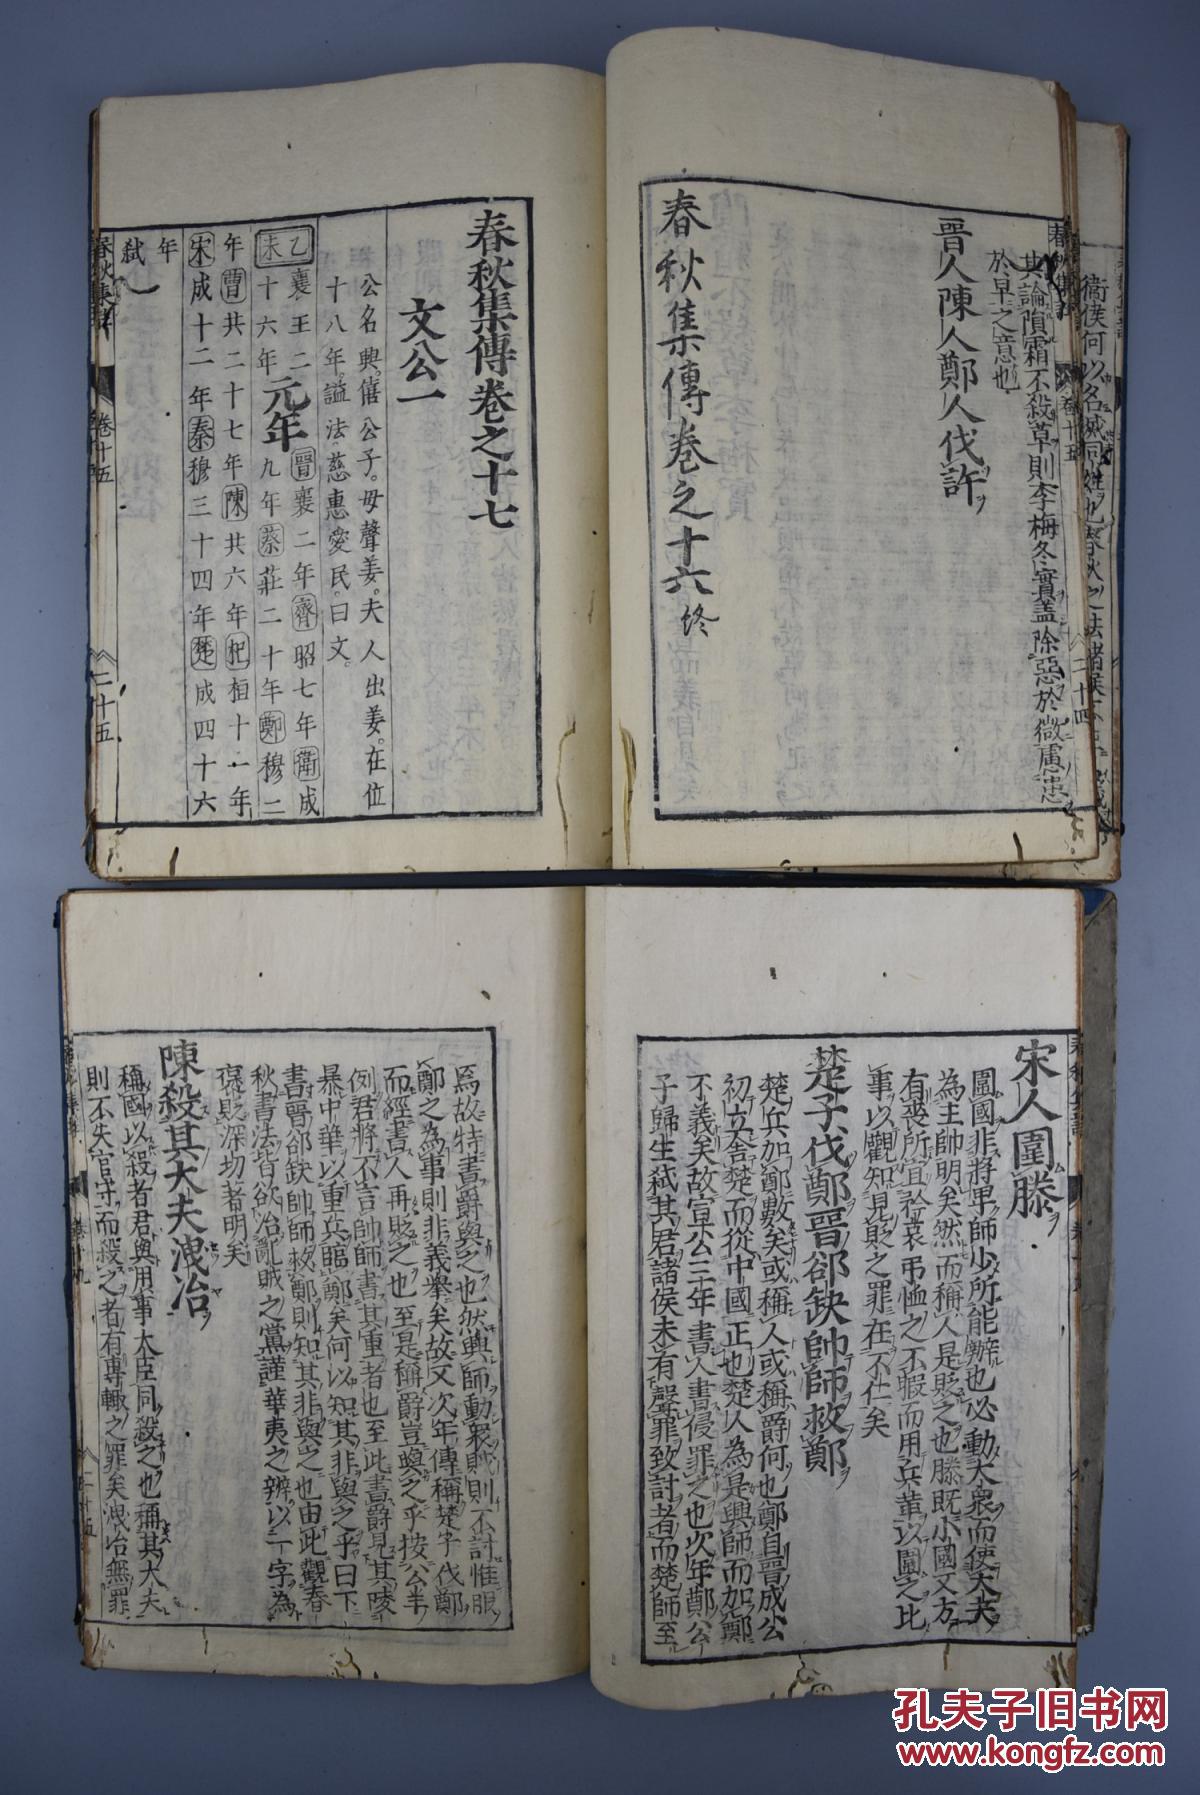 衛侯何以名滅同姓也春秋之法諸侯
其論隕霜不殺草則李梅冬實蓋除惡於微慮患
於早之意也
晉人陳人鄭人伐許
春秋集傳卷之十六終
春秋集傳卷之十七
文公一
公名興僖公子。母聲姜。夫人出姜。在位
十八年。謚法。慈惠愛民。曰文。
乙未
襄王二十六年
元年
晉襄二年齊昭七年衛成
九年蔡莊二十年鄭穆二
年曹共二十七年陳共六年杞桓十一年
宋成十二年秦穆三十四年楚成四十六
年
弑
卷十五
二十五
宋人圍滕
圍國非將卑師少所能辦也必動大衆而使大夫
為主帥明矣然而稱人是貶之也滕既小國又方
有喪所宜矜哀弔恤之不暇而用兵革以圍之比
事以觀知見貶之罪在不仁矣
楚子伐鄭晉郤缺帥師救鄭
楚兵加鄭數矣或稱人或稱爵何也鄭自晉成公
初立舍楚而從中國正也楚人為是興師而加鄭
不義矣故宣公三年書人書侵罪之也次年鄭公
子歸生弑其君諸侯未有聲罪致討者而楚師至
焉故特書爵與之也然興師動衆賊則不討惟服
鄭之為事則非義舉矣故又次年傳稱楚子伐鄭
而經書人再貶之也至是稱爵豈與之乎按公羊
例君將不言帥師書其重者也至此書爵見其陵
暴中華以重兵臨鄭矣何以知其非與之乎曰下
書晉郤缺帥師救鄭則知其非與之也由此觀春
秋書法皆欲治亂賊之黨謹華夷之辨以一字為
褒貶深切著明矣
陳殺其大夫洩冶
稱國以殺者君與用事大臣同殺之也稱其大夫
則不失官守而殺之者有專輙之罪矣洩冶無罪
孔夫子旧书网
www.kongfz.com